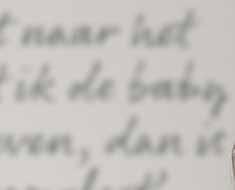 t naar het
t ik de baby
ven, dan is